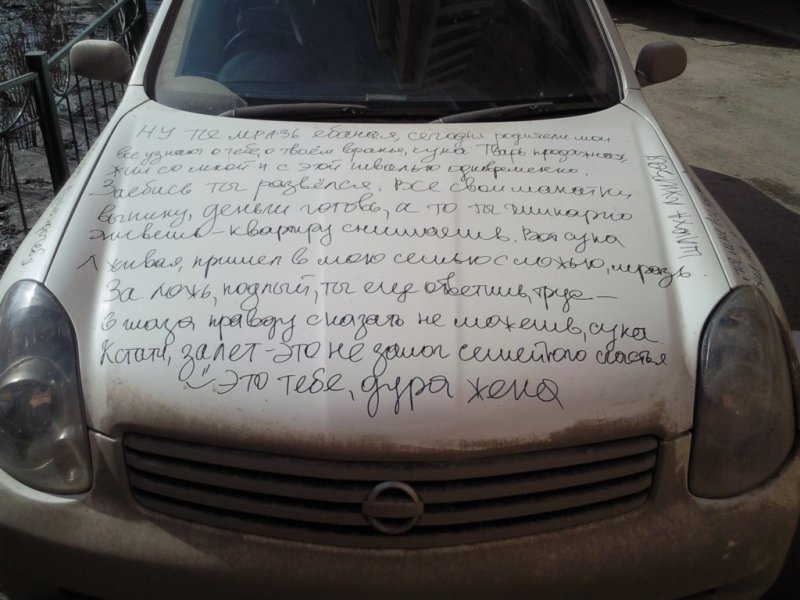 НУ ТЫ МРАЗЬ ебаная, сегодня родители мои
все узнают о тебе, о твоём вранье, сука Тварь продажная,
жил со мной и с этой одновременно.
Заебись ты развёлся. Все свои манатки
выкину, деньги готовь, а то ты шикарно
живешь – квартиру снимаешь. Вот сука
лживая, пришел в мою семью с ложью, мразь.
За ложь, подлый, ты еще ответишь, трус –
в глаза правду сказать не можешь, сука
Кстати, залет – это не залог семейного счастья
это тебе, дура жена